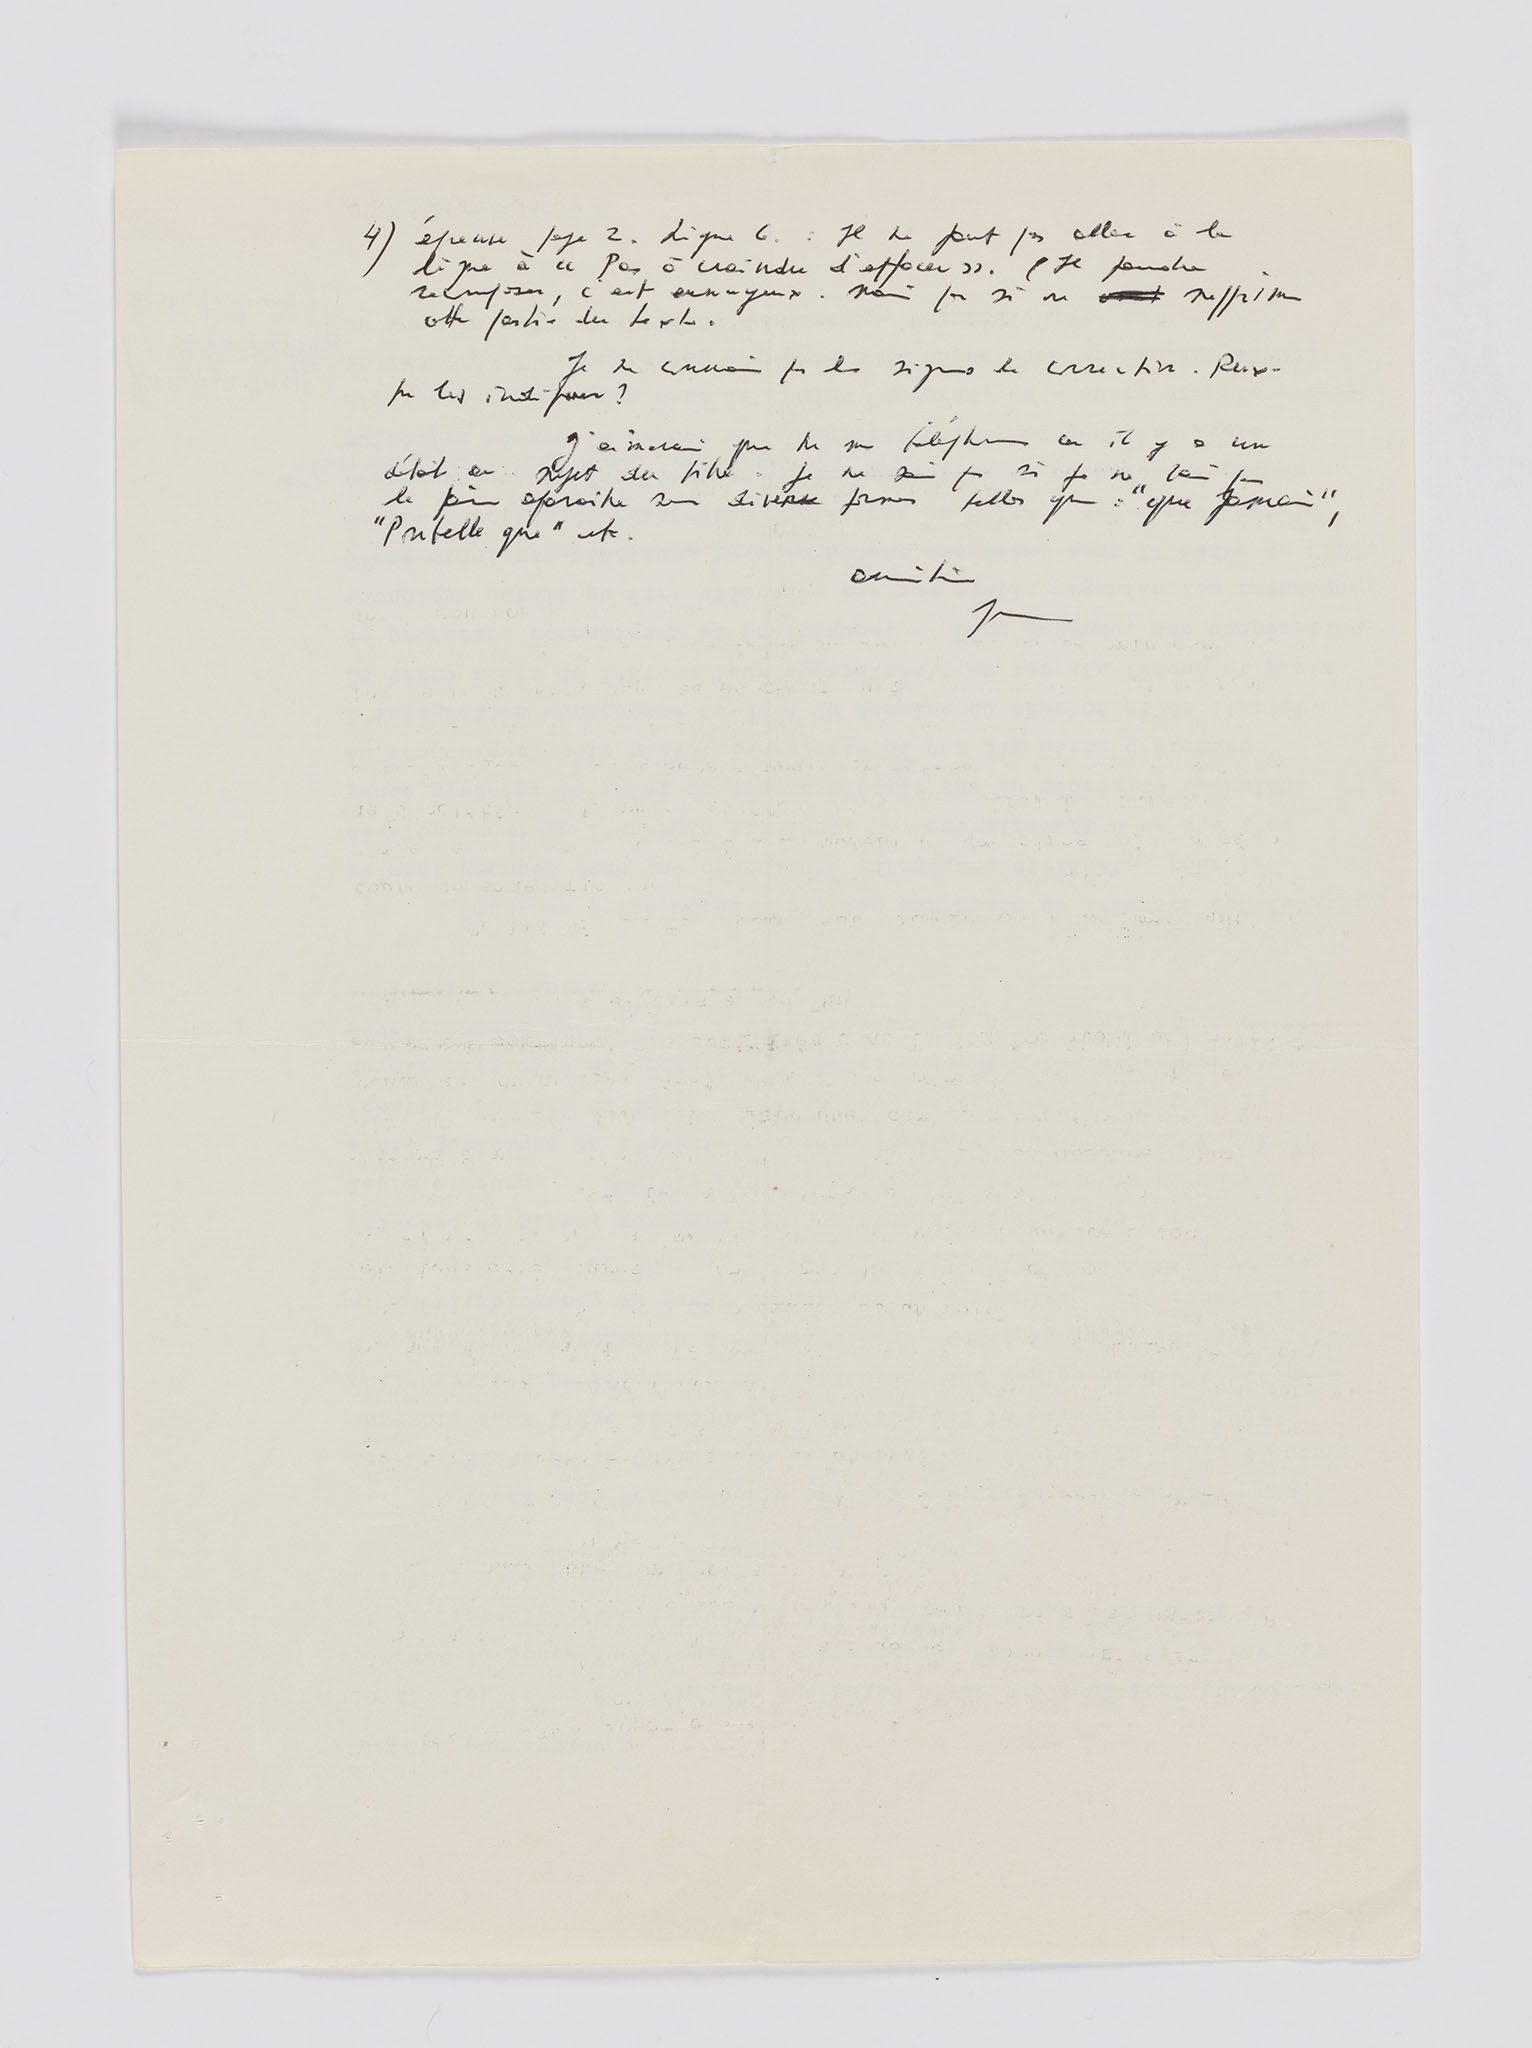 4) épreuve page 2. Ligne 6. : Il ne faut pas aller à la
ligne à " Pas à craindre d'effacer ». (Il faudra
recomposer, c'est ennuyeux. Mais pas si on supprime
cette partie du texte.
Je ne connais pas les signes de correction. Peux-
tu les indiquer?
J'aimerais que tu me téléphones car il y a un
détail au sujet du titre. Je ne sais pas si je ne vais pas
le faire apparaître sous diverses formes telles que : "que jamais",
"Pu telle que" etc.
amitié